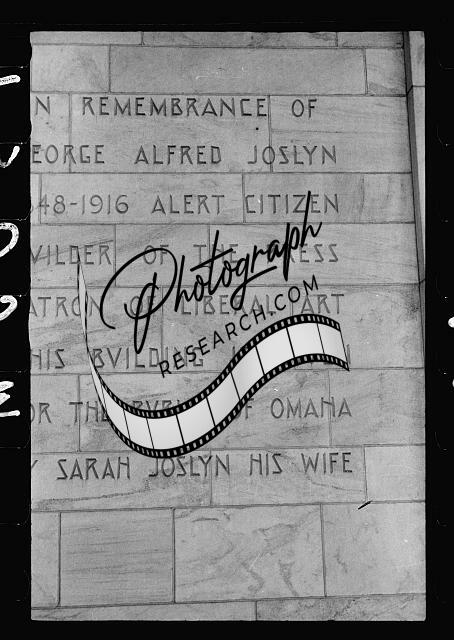 N REMEMBRANCE OF
EORGE ALFRED JOSLYN
48-1916 ALERT CITIZEN
VILDER OF THE ESS
ATRON OF LIBERAL ART
HIS BVILDING
OR THE PVBLIC OF OMAHA
Y SARAH JOSLYN HIS WIFE
Photograph
RESEARCH.COM